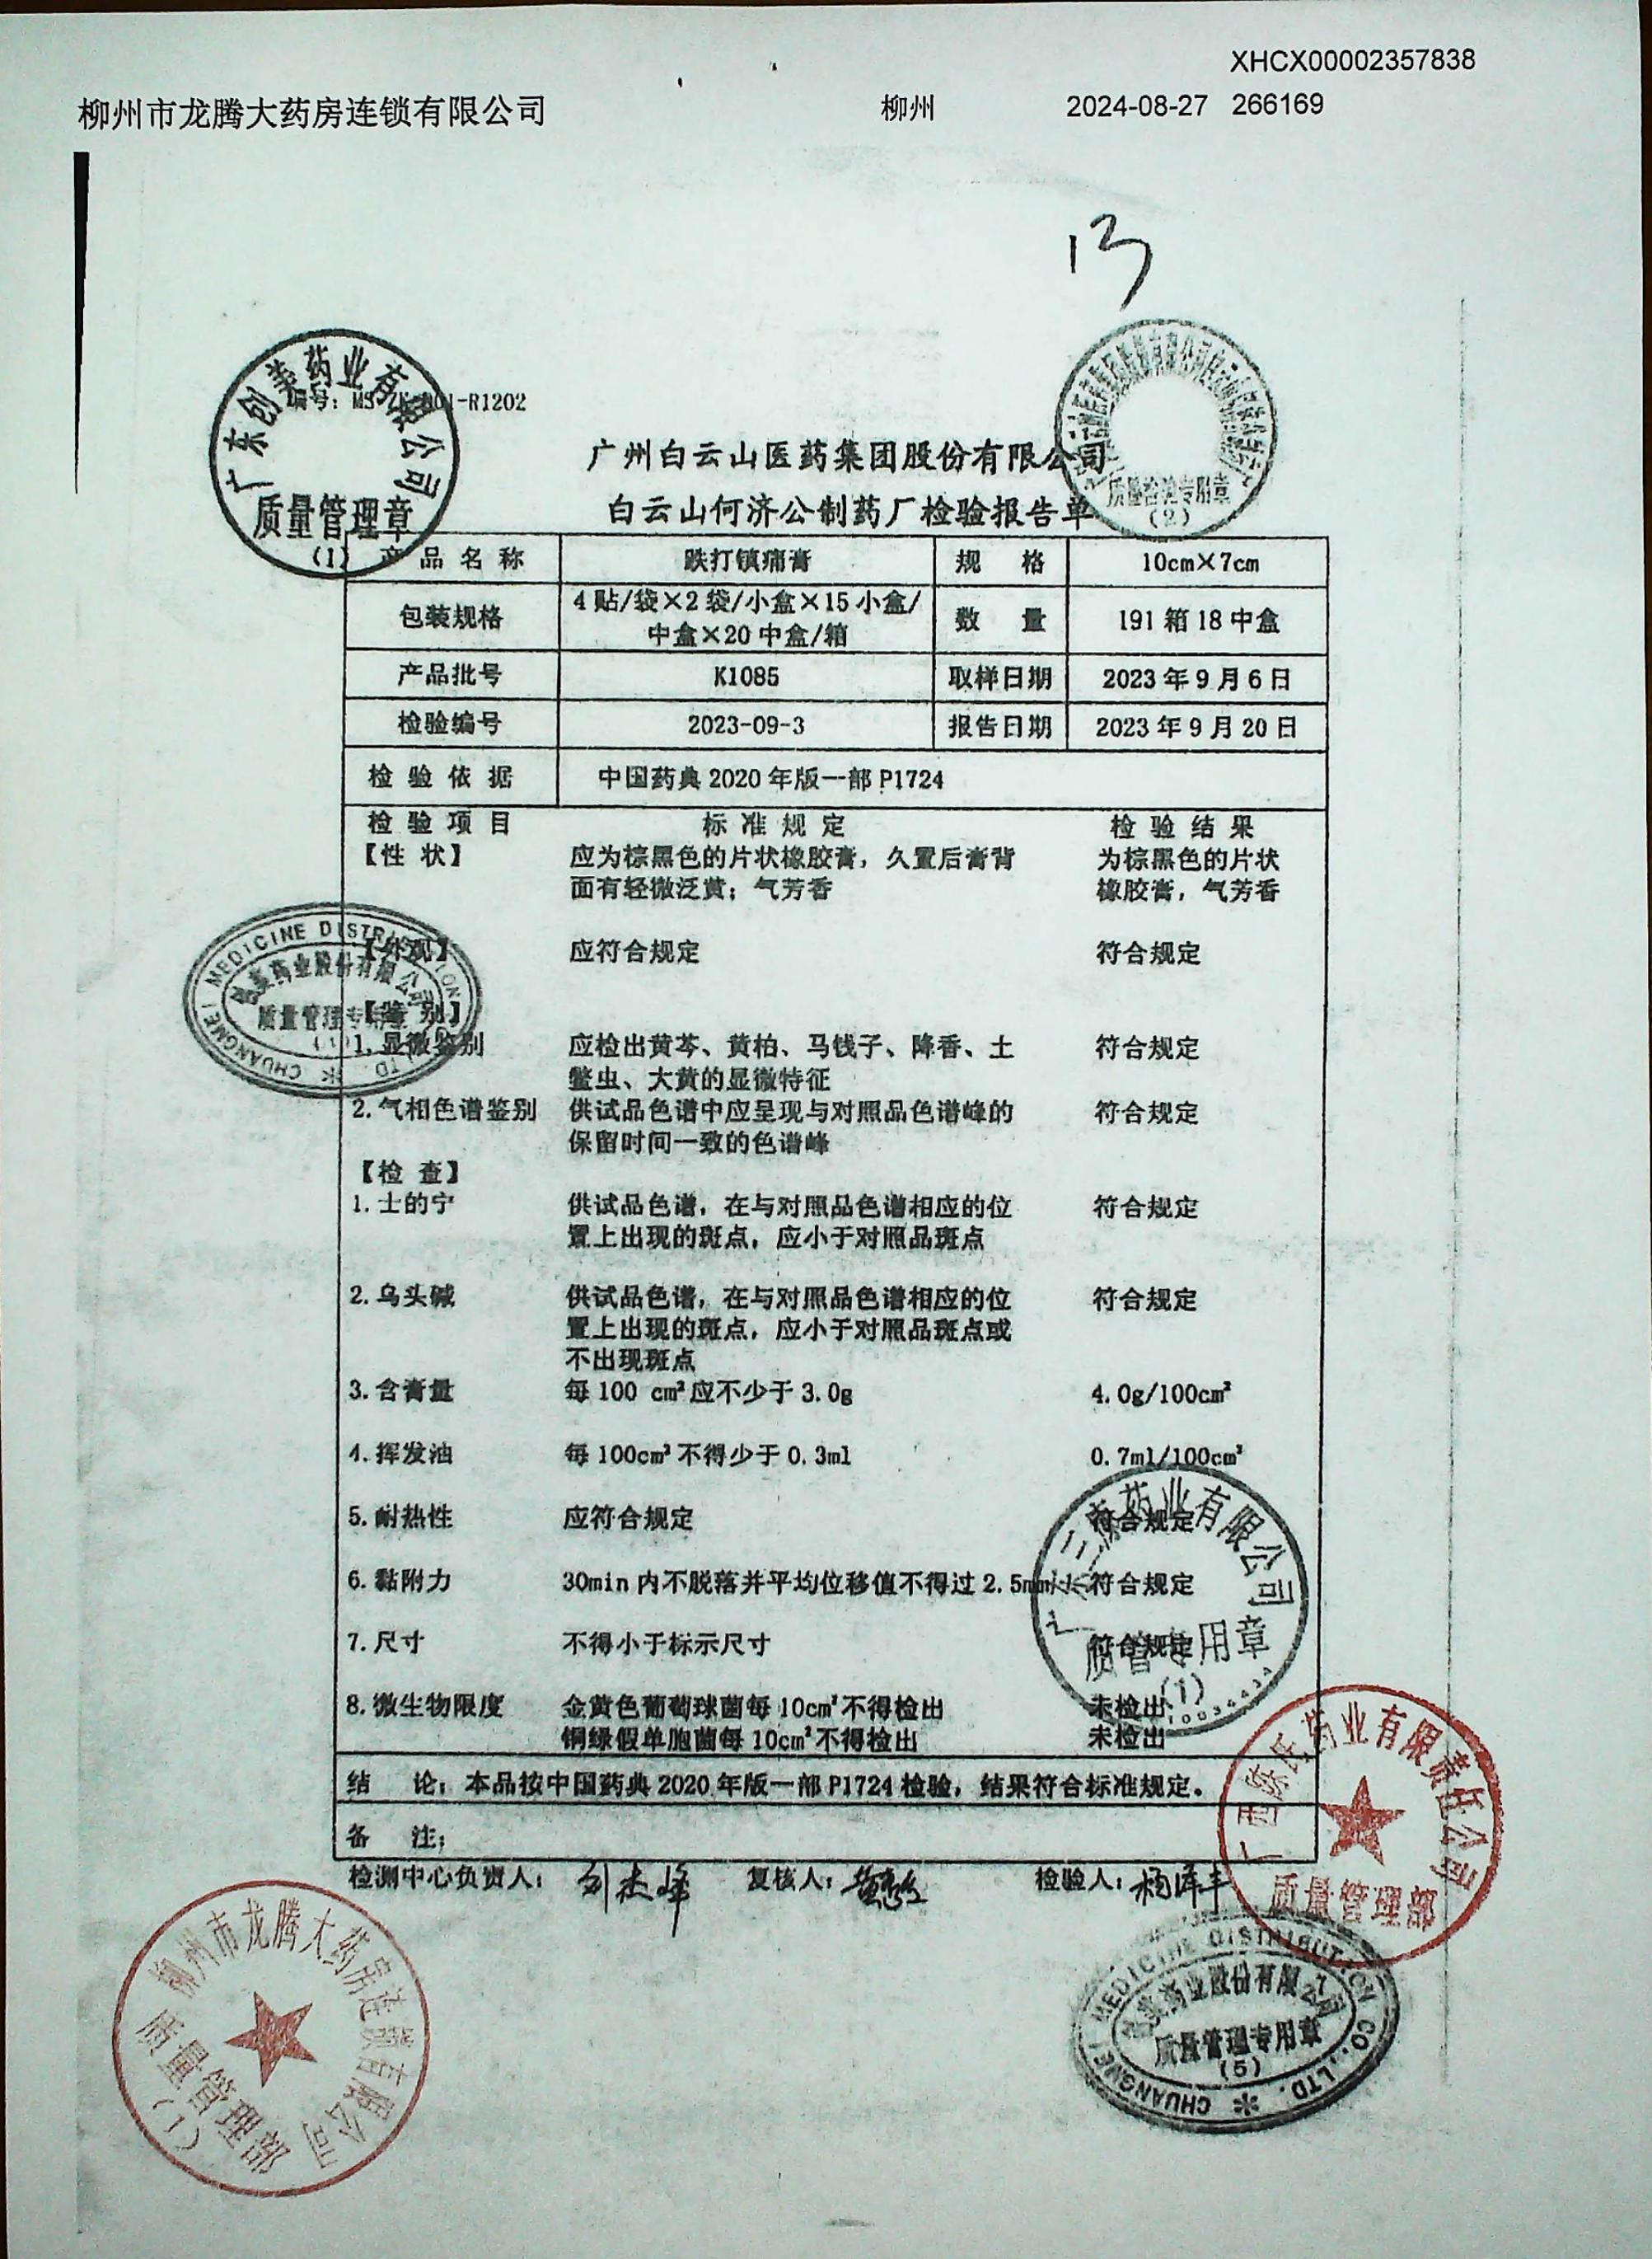 XHCX00002357838
柳州市龙腾大药房连锁有限公司 柳州 2024-08-27 266169
13
编号：MS-ZK-001-R1202
广东创美药业有限公司
质量管理章
(1)
质量检验专用章
(2)
广州白云山医药集团股份有限公司
白云山何济公制药厂检验报告单
产品名称 跌打镇痛膏 规 格 10cm×7cm
包装规格 4贴/袋×2袋/小盒×15小盒/
中盒×20中盒/箱 数 量 191箱18中盒
产品批号 K1085 取样日期 2023年9月6日
检验编号 2023-09-3 报告日期 2023年9月20日
检验依据 中国药典2020年版一部P1724
检验项目 标准规定 检验结果
【性 状】 应为棕黑色的片状橡胶膏，久置后膏背 为棕黑色的片状
面有轻微泛黄；气芳香 橡胶膏，气芳香
【外观】 应符合规定 符合规定
【鉴 别】
1.显微鉴别 应检出黄芩、黄柏、马钱子、降香、土 符合规定
鳖虫、大黄的显微特征
2.气相色谱鉴别 供试品色谱中应呈现与对照品色谱峰的 符合规定
保留时间一致的色谱峰
【检 查】
1.士的宁 供试品色谱，在与对照品色谱相应的位 符合规定
置上出现的斑点，应小于对照品斑点
2.乌头碱 供试品色谱，在与对照品色谱相应的位 符合规定
置上出现的斑点，应小于对照品斑点或
不出现斑点
3.含膏量 每100 cm²应不少于3.0g 4.0g/100cm²
4.挥发油 每100cm²不得少于0.3ml 0.7ml/100cm²
5.耐热性 应符合规定 符合规定
6.黏附力 30min内不脱落并平均位移值不得过2.5mm 符合规定
7.尺寸 不得小于标示尺寸 符合规定
8.微生物限度 金黄色葡萄球菌每10cm²不得检出 未检出
铜绿假单胞菌每10cm²不得检出 未检出
结 论：本品按中国药典2020年版一部P1724检验，结果符合标准规定。
备 注：
检测中心负责人： 复核人： 检验人：
CHUANGMEI MEDICINE DISTRIBUTION CO.,LTD.
创美药业股份有限公司
质量管理专用章
药业有限公司
质管专用章
(1)
药业有限责任公司
质量管理部
柳州市龙腾大药房连锁有限公司
质量管理部
(1)
CHUANGMEI MEDICINE DISTRIBUTION CO.,LTD.
创美药业股份有限公司
质量管理专用章
(5)